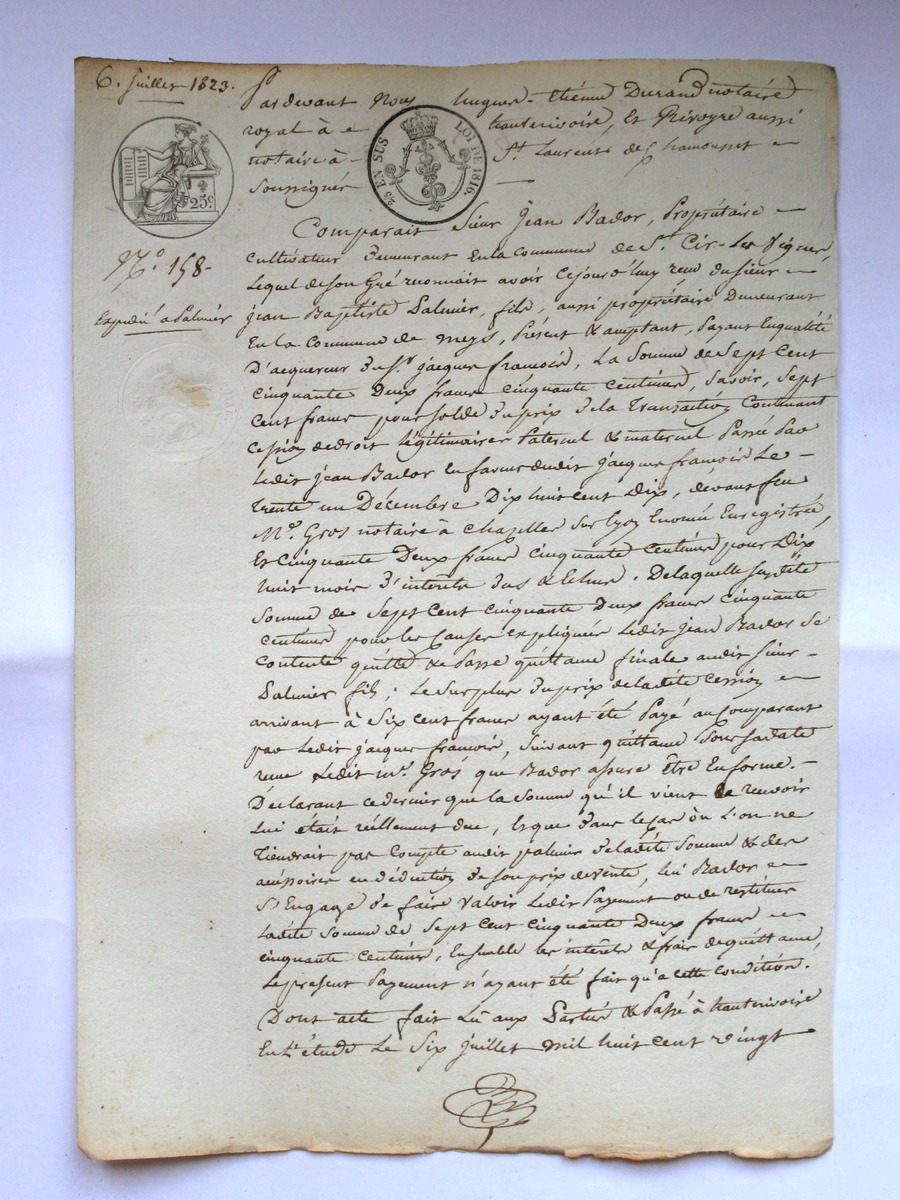 6. Juillet 1823.
Pardevant Nous hugues-Etienne Durand notaire
royal à hauterivoire, et Privoyre aussi
notaire à St. Laurent de Chamousset
soussignés
25 EN SUS LOI DE 1816.
25c.
N.º 158-
Expédié a Palmier
Comparait Sieur Jean Bador, Propriétaire
cultivateur demeurant En la commune de St. Cir-les Vignes,
Lequel de son Gré reconnait avoir cejourd'huy reçu du sieur
jean Baptiste Palmier, fils, aussi propriétaire Demeurant
En la Commune de meys, Présent & acceptant, Payant En qualité
D'acquereur de Sr. jacques francois, La Somme de Sept Cent
cinquante Deux francs cinquante centimes, Savoir, Sept
Cent francs pour solde du prix de la Transaction Contenant
cession de droits légitimaires Paternel & maternel Passée Par
Ledit jean Bador En faveur dudit jacques francois Le
Trente un Décembre Dix huit cent Dix, devant feu
Me. Gros notaire à Chazelles sur lyon Enormée Enregistrée,
Et Cinquante Deux francs Cinquante Centimes pour Dix
huit mois d'intérêts dus & échus. De laquelle susdite
Somme de Sept Cent cinquante Deux francs cinquante
centimes pour les Causes expliquées Ledit jean Bador Se
Contente quitte & Passe quittance finale audit sieur
Palmier fils; Le Surplus du prix de ladite Cession
arrivant à Six cent francs ayant été Payé au Comparant
par Ledit jacques francois, Suivant quittance Sous sa date
reçue Ledit me. Gros que Bador assure être En forme.
Déclarant ce dernier que la Somme qu'il vient de recevoir
Lui était réellement due, Et que dans le cas où L'on ne
Tiendrait pas Compte audit palmier de ladite Somme & des
accessoires en déduction de son prix de vente, lui Bador
S'Engage de faire Valoir Ledit Payement ou de restituer
Ladite Somme de Sept Cent cinquante Deux francs
cinquante Centimes, Ensemble les intérêts & frais de quittance,
Le présent Payement n'ayant été fait qu'à cette Condition.
Dont acte fait Lû aux Parties & Passé à hauterivoire
En L'étude Le Six juillet mil huit cent vingt